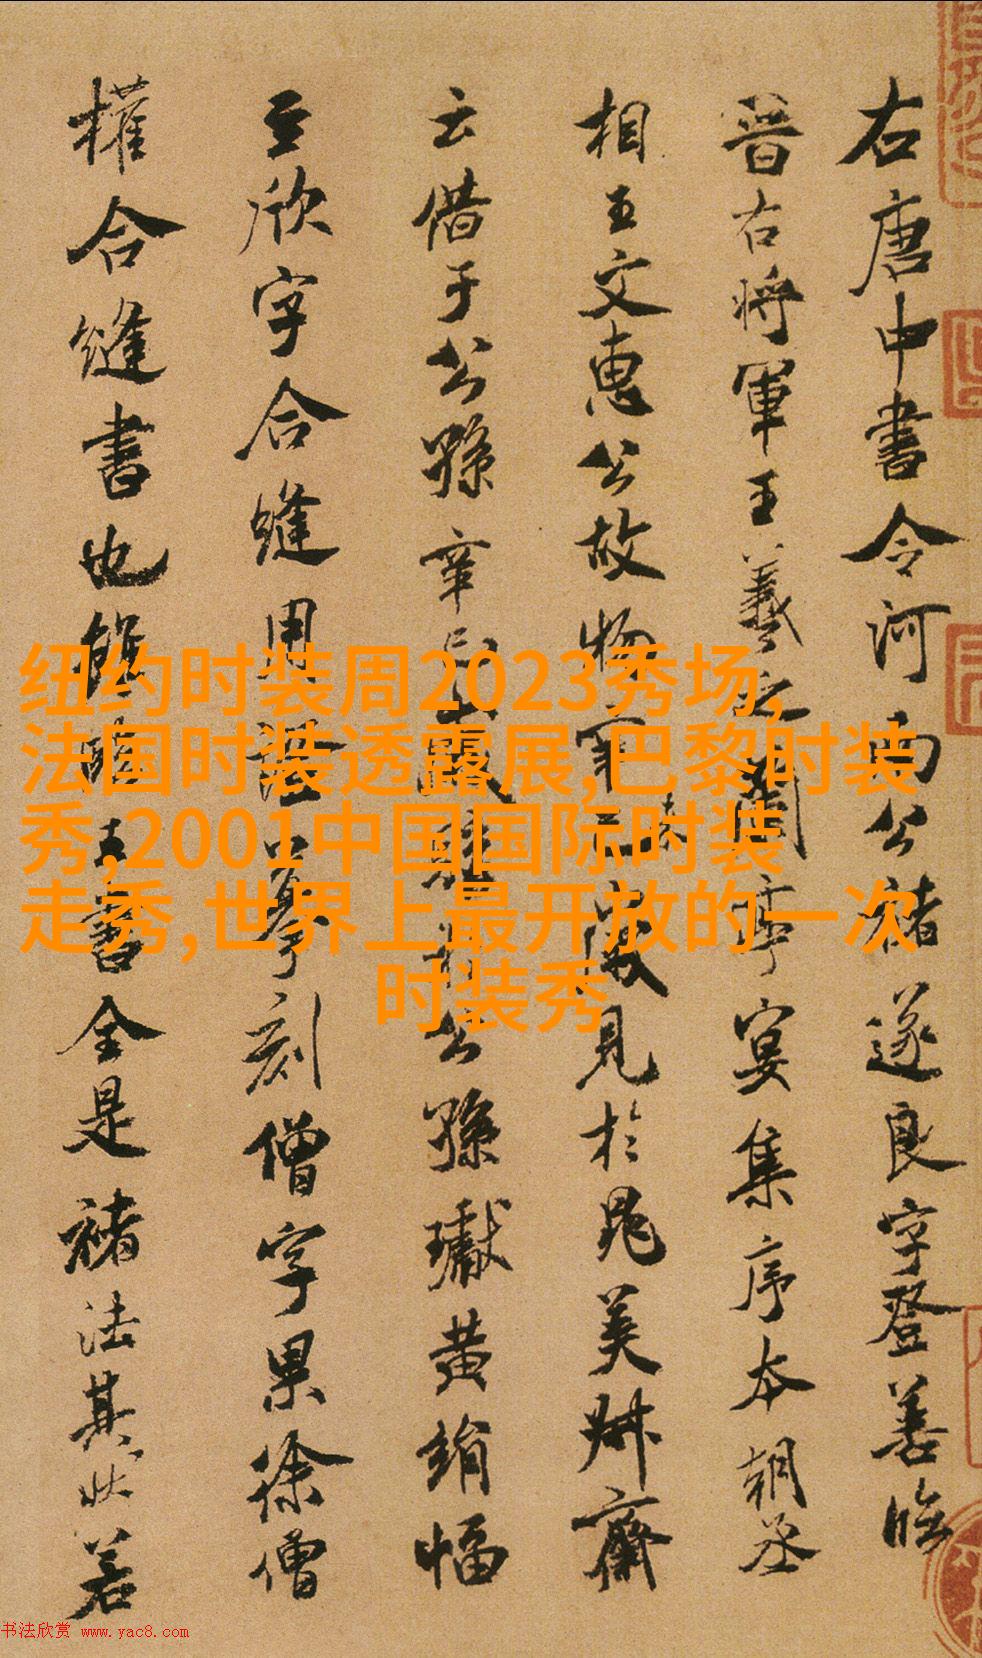 右唐中書令河南公褚遂良字登善臨
晉右將軍王羲之蘭亭宴集序本朝丞
相王文惠公故物辛巳歲見於晁美叔齋
云借于公孫
章公孫瓛黃絹幅
至欣字合縫用證摹刻僧字果徐僧
權合縫書也雖臨王書全是褚法其狀若
纽约时装周2023秀场,
法国时装透露展,巴黎时装
秀,2001中国国际时装
走秀,世界上最开放的一次
时装秀
书法欣赏 www.yac8.com